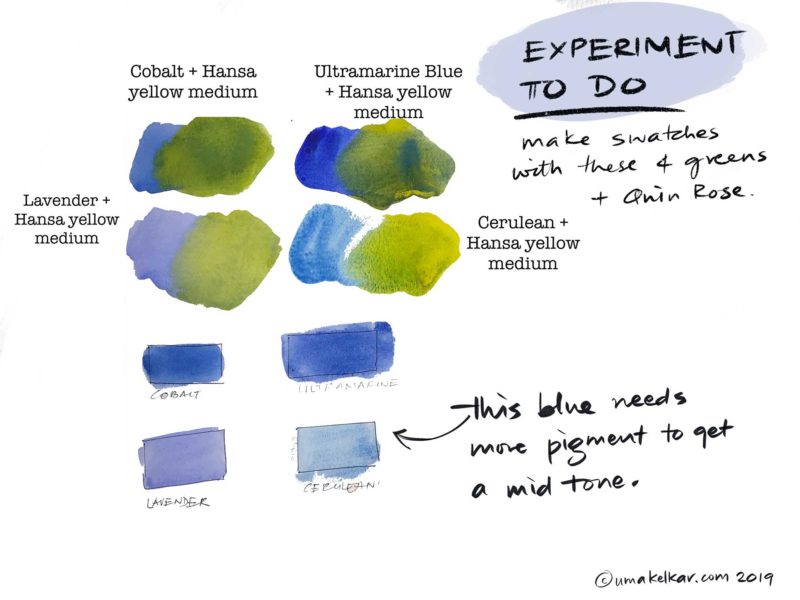 EXPERIMENT
TO DO
make swatches
with these 4 greens
+ Quin Rose.
Cobalt + Hansa
yellow medium
Ultramarine Blue
+ Hansa yellow
medium
Lavender +
Hansa yellow
medium
Cerulean +
Hansa yellow
medium
COBALT
ULTRAMARINE
LAVENDER
CERULEAN
this blue needs
more pigment to get
a mid tone.
©umakelkar.com 2019